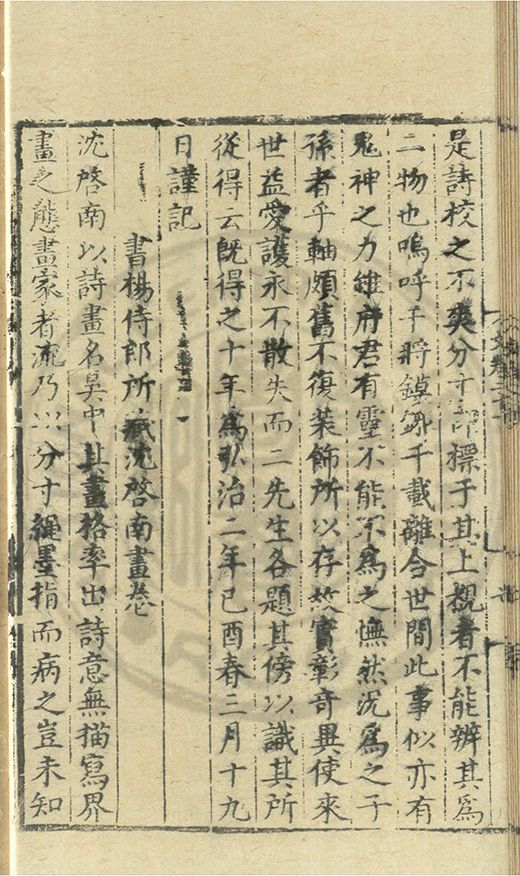 是詩校之不爽分寸即標于其上覩者不能辨其為
二物也嗚呼干將鏌鎁千載離合世間此事似亦有
鬼神之力雖府君有靈不能不為之憮然況為之子
孫者乎軸頗舊不復裝飾所以存故實彰奇異使來
世益愛護永不散失而二先生各題其傍以識其所
從得云既得之十年為弘治二年己酉春三月十九
日謹記
書楊侍郎所藏沈啓南畫卷
沈啓南以詩畫名吳中其畫格率出詩意無描寫界
畫之態畫家者流乃以分寸繩墨指而病之豈未知